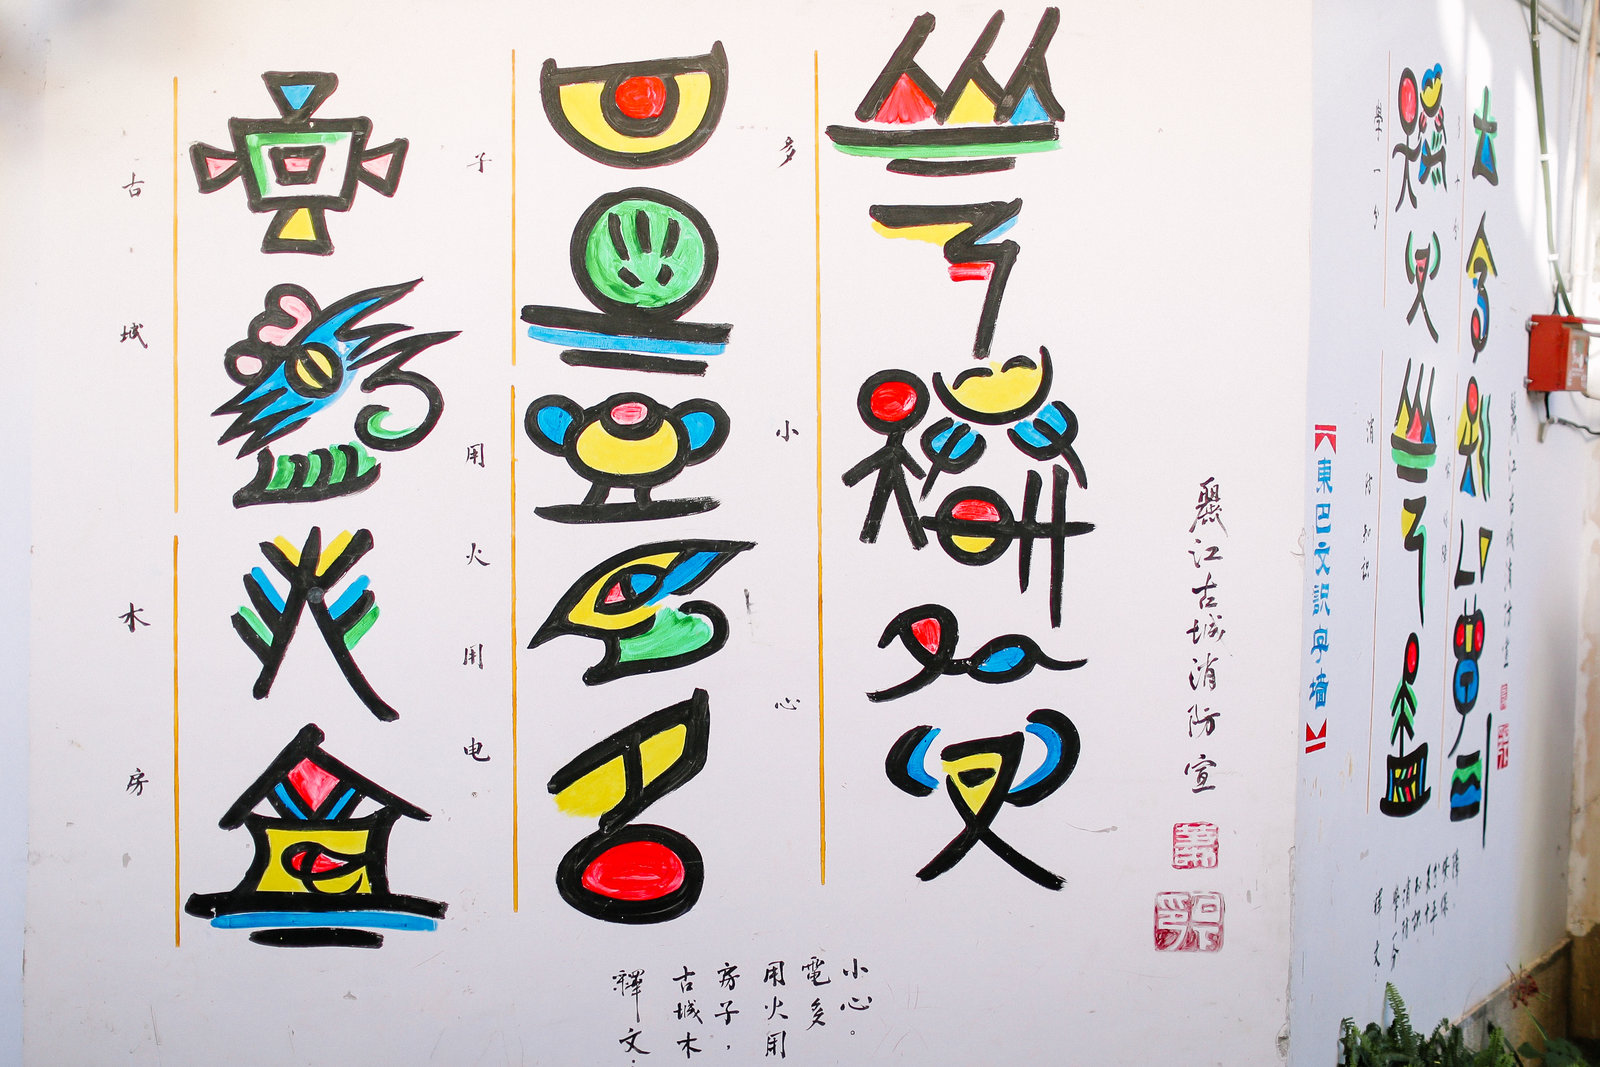 古城木房
子用火用电
多小心
麗江古城消防宣
釋文:
古城木
房子,
用火用
電多
小心。
東巴文识字墙
學一分
消防知识
麗江古城消防宣
釋文: